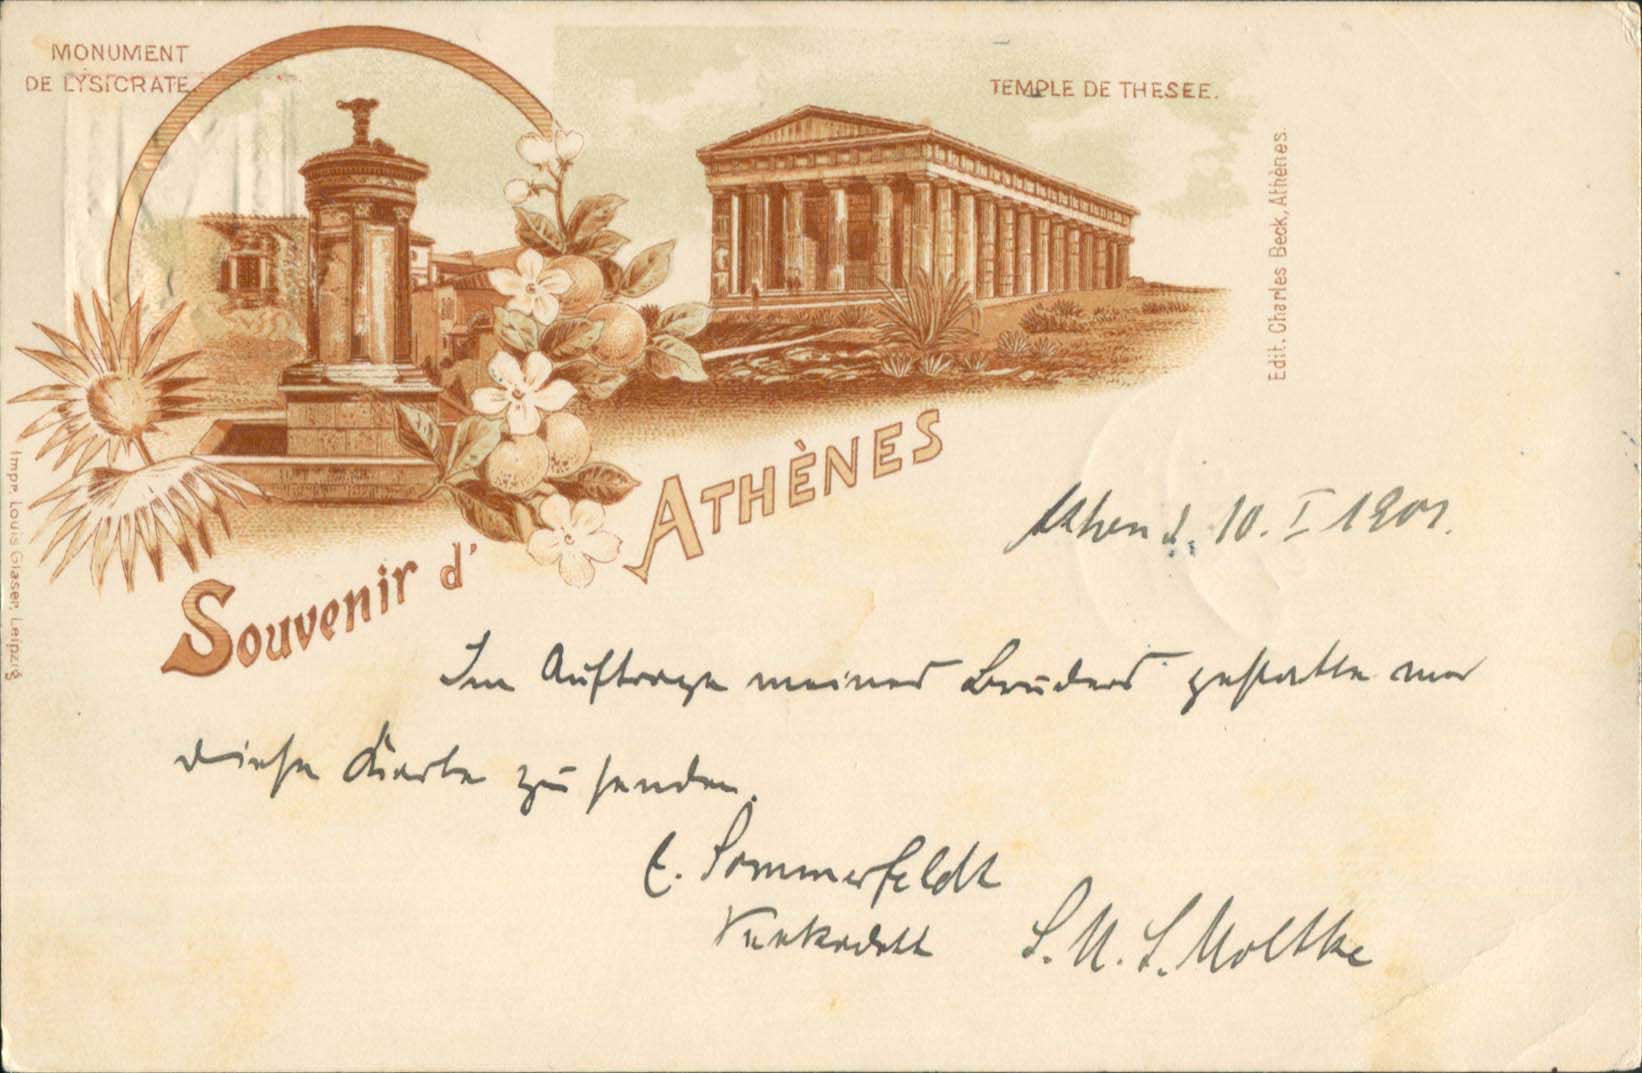 MONUMENT
DE LYSICRATE.
TEMPLE DE THESEE.
Edit. Charles Beck, Athènes.
Impr. Louis Glaser, Leipzig
Souvenir d' ATHÈNES
Athen d. 10. I 1901.
Im Auftrage meines Bruders gestatte mir
diese Karte zu senden.
E. Sommerfeldt
Seekadett S. M. S. Moltke